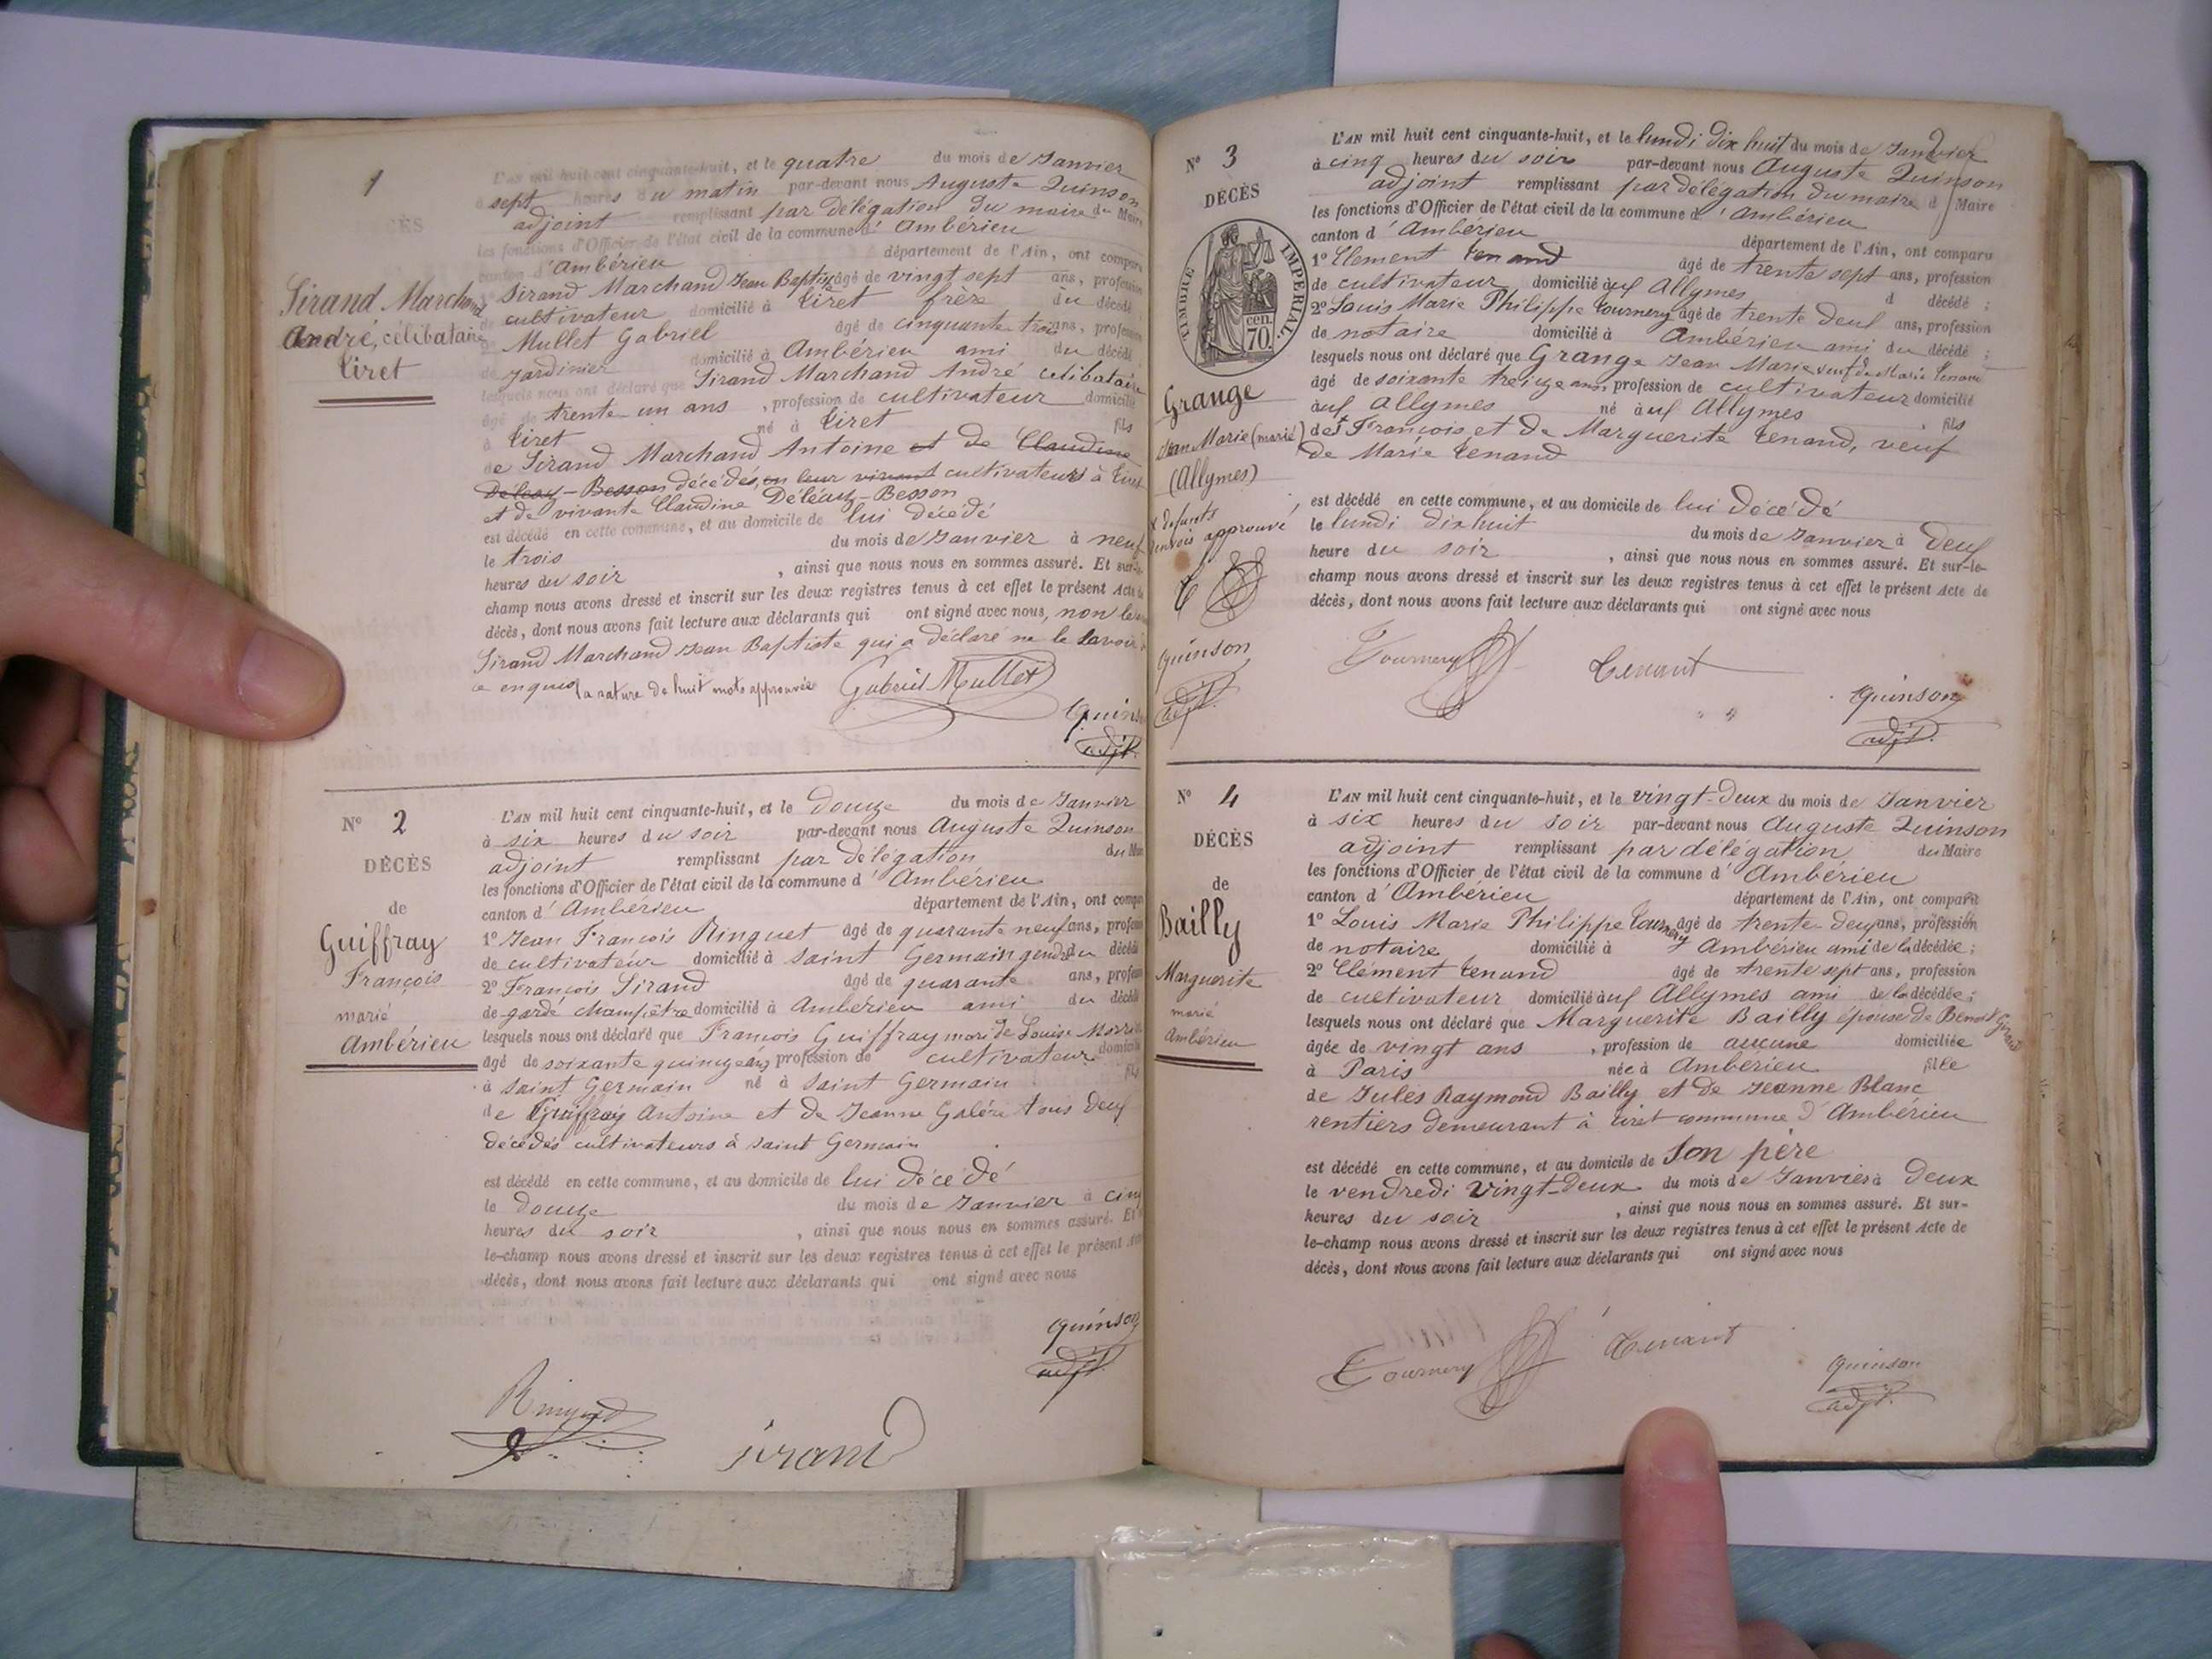 1
CÈS
Sirand Marchand
André, célibataire
Tiret
L'AN mil huit cent cinquante-huit, et le quatre du mois de Janvier
à sept heures du matin par-devant nous Auguste Quinson
adjoint remplissant par délégation du maire du Maire
les fonctions d'Officier de l'état civil de la commune d' Ambérieu
canton d' Ambérieu département de l'Ain, ont comparu
Sirand Marchand Jean Baptiste âgé de vingt sept ans, profession
de cultivateur domicilié à Tiret frère du décédé
Mullet Gabriel âgé de cinquante trois ans, profession
de jardinier domicilié à Ambérieu ami du décédé
lesquels nous ont déclaré que Sirand Marchand André célibataire
âgé de trente un ans, profession de cultivateur domicilié
à Tiret né à Tiret fils
de Sirand Marchand Antoine et de Claudine
Déléaz-Besson décédés, en leur vivant cultivateurs à Tiret
et de vivante Claudine Déléaz-Besson
est décédé en cette commune, et au domicile de lui décédé
le trois du mois de Janvier à neuf
heures du soir, ainsi que nous nous en sommes assuré. Et sur-le-
champ nous avons dressé et inscrit sur les deux registres tenus à cet effet le présent Acte de
décès, dont nous avons fait lecture aux déclarants qui ont signé avec nous, non le
Sirand Marchand Jean Baptiste qui a déclaré ne le savoir
ce enquis la rature de huit mots approuvée Gabriel Mullet
Quinson
adjt.
N° 2
DÉCÈS
de
Guiffray
François
marié
Ambérieu
L'AN mil huit cent cinquante-huit, et le douze du mois de Janvier
à six heures du soir par-devant nous Auguste Quinson
adjoint remplissant par délégation du Maire
les fonctions d'Officier de l'état civil de la commune d' Ambérieu
canton d' Ambérieu département de l'Ain, ont comparu
1° Jean François Ringuet âgé de quarante neuf ans, profession
de cultivateur domicilié à Saint Germain gendre du décédé
2° François Sirand âgé de quarante ans, profession
de garde champêtre domicilié à Ambérieu ami du décédé
lesquels nous ont déclaré que François Guiffray mari de Louise
âgé de soixante quinze ans, profession de cultivateur domicilié
à Saint Germain né à Saint Germain fils
de Guiffray Antoine et de Jeanne Galéra tous deux
décédés cultivateurs à Saint Germain
est décédé en cette commune, et au domicile de lui décédé
le douze du mois de Janvier à cinq
heures du soir, ainsi que nous nous en sommes assuré. Et
le-champ nous avons dressé et inscrit sur les deux registres tenus à cet effet le présent Acte
décès, dont nous avons fait lecture aux déclarants qui ont signé avec nous
Quinson
adjt.
Ringuet
Sirand
N° 3
DÉCÈS
TIMBRE IMPERIAL.
cen.
70.
Grange
Jean Marie (marié)
(Allymes)
x défunts
renvois approuvé
T
Quinson
adjt.
L'AN mil huit cent cinquante-huit, et le lundi dix huit du mois de Janvier
à cinq heures du soir par-devant nous Auguste Quinson
adjoint remplissant par délégation du maire d Maire
les fonctions d'Officier de l'état civil de la commune d' Ambérieu
canton d' Ambérieu département de l'Ain, ont comparu
1° Clement Tenand âgé de trente sept ans, profession
de cultivateur domicilié aux Allymes d décédé;
2° Louis Marie Philippe Tournery âgé de trente deux ans, profession
de notaire domicilié à Ambérieu ami du décédé;
lesquels nous ont déclaré que Grange Jean Marie veuf de Marie Tenand
âgé de soixante treize ans, profession de cultivateur domicilié
aux Allymes né aux Allymes, fils
des x François et de Marguerite Tenand, veuf
de Marie Tenand
est décédé en cette commune, et au domicile de lui décédé
le lundi dix huit du mois de Janvier à deux
heure du soir, ainsi que nous nous en sommes assuré. Et sur-le-
champ nous avons dressé et inscrit sur les deux registres tenus à cet effet le présent Acte de
décès, dont nous avons fait lecture aux déclarants qui ont signé avec nous
Tournery Tenant
Quinson
adjt.
N° 4
DÉCÈS
de
Bailly
Marguerite
marié
Ambérieu
L'AN mil huit cent cinquante-huit, et le vingt-deux du mois de Janvier
à six heures du soir par-devant nous Auguste Quinson
adjoint remplissant par délégation du Maire
les fonctions d'Officier de l'état civil de la commune d' Ambérieu
canton d' Ambérieu département de l'Ain, ont comparu
1° Louis Marie Philippe Tournery âgé de trente-deux ans, profession
de notaire domicilié à Ambérieu ami de la décédée;
2° Clément Tenand âgé de trente sept ans, profession
de cultivateur domicilié aux Allymes ami de la décédée;
lesquels nous ont déclaré que Marguerite Bailly épouse de Benoit
âgée de vingt ans, profession de aucune domiciliée
à Paris née à Ambérieu fille
de Jules Raymond Bailly et de Jeanne Blanc
rentiers demeurant à Tiret commune d'Ambérieu
est décédé en cette commune, et au domicile de son père
le vendredi vingt-deux du mois de Janvier à deux
heures du soir, ainsi que nous nous en sommes assuré. Et sur-
le-champ nous avons dressé et inscrit sur les deux registres tenus à cet effet le présent Acte de
décès, dont nous avons fait lecture aux déclarants qui ont signé avec nous
Tournery Tenant
Quinson
adjt.